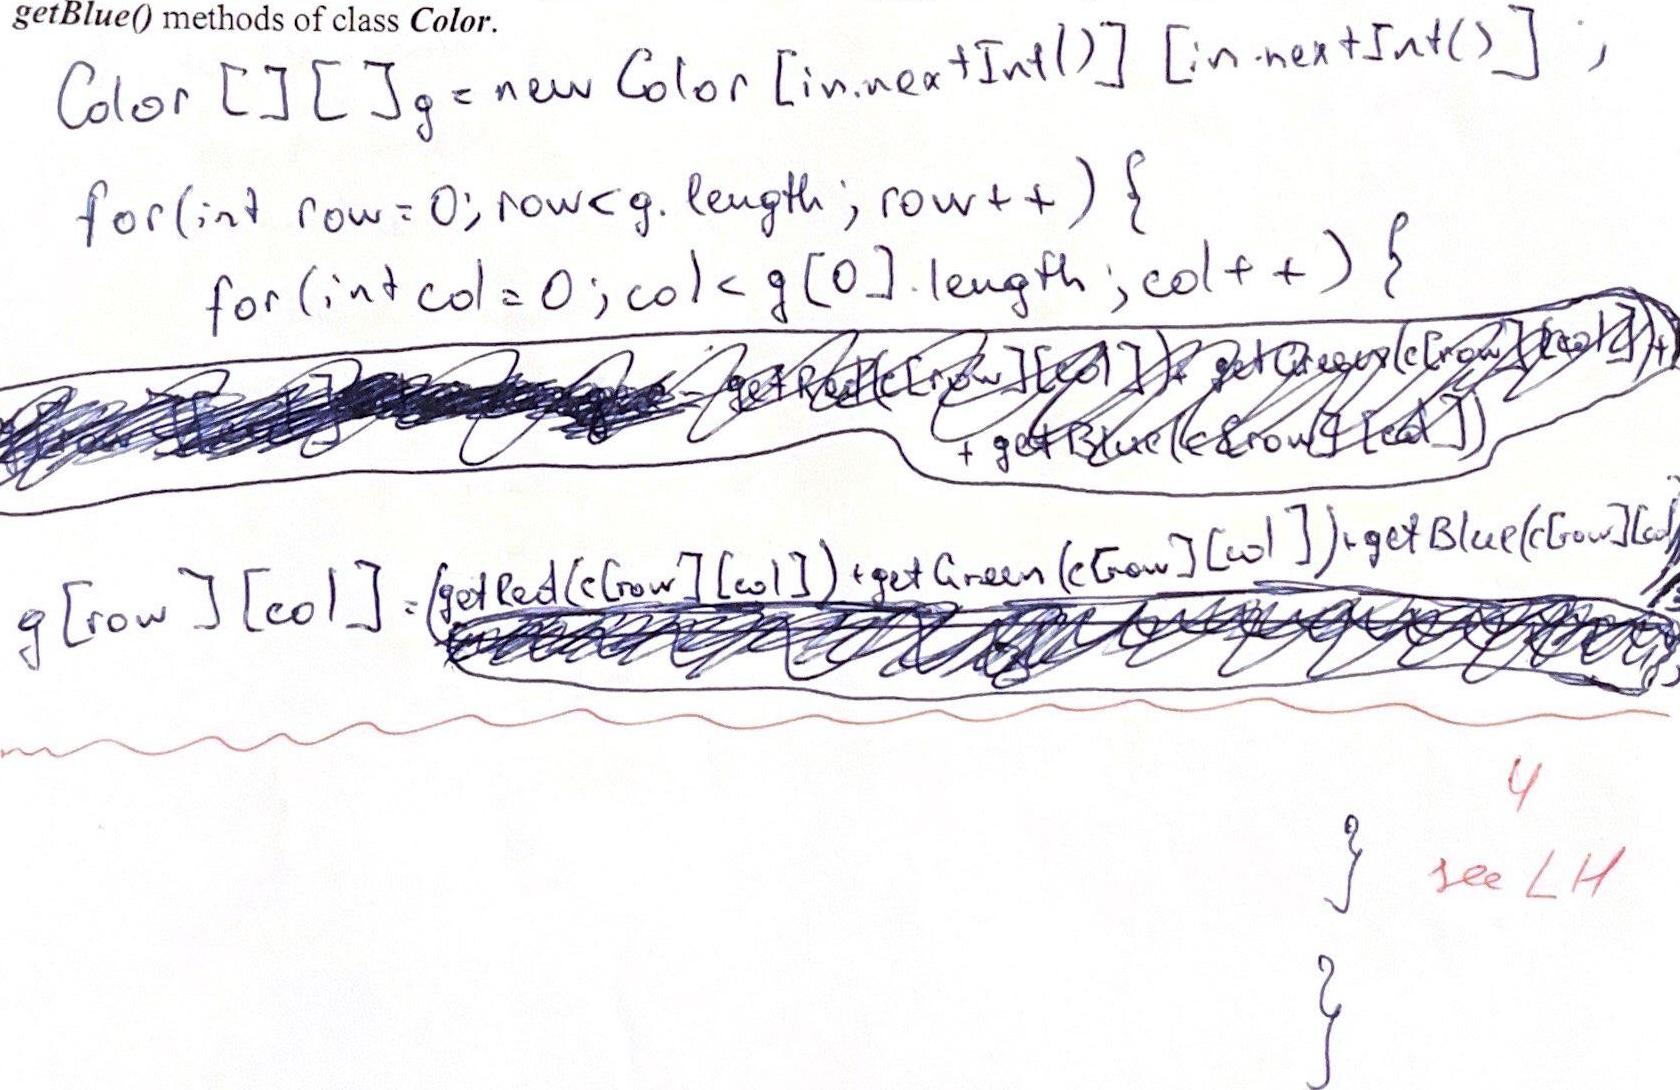 getBlue() methods of class Color.
Color [][]g = new Color [in.nextInt()] [in.nextInt()] ;
for(int row=0; row<g.length; row++) {
for(int col=0; col<g[0].length; col++) {
getRed(c[row][col]) + getGreen(c[row][col]) +
+ getBlue(c[row][col])
g[row][col] = (getRed(c[row][col]) + getGreen(c[row][col]) + getBlue(c[row][col]
4
}
see LH
}